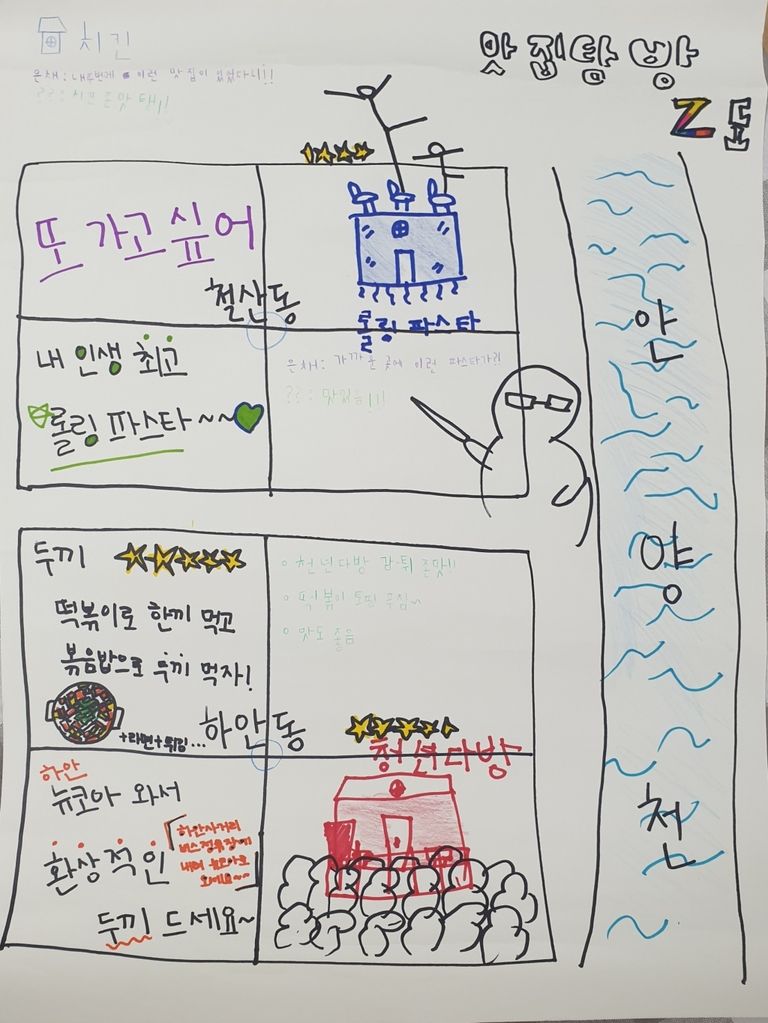 맛집탐방
Z도
치킨
은채: 내 주변에 이런 맛집이 있었다니!!
또 가고 싶어
철산동
롤링파스타
내 인생 최고
롤링 파스타~~
은채: 가까운 곳에 이런 파스타가?!
??: 맛있음!!!
안
양
천
두끼
떡볶이로 한끼 먹고
볶음밥으로 두끼 먹자!
+라면+튀김...
하안동
청년다방 감튀 존맛!!
떡볶이 토핑 푸짐~
맛도 좋음
청년다방
하안
뉴코아 와서
환상적인
「하안사거리
버스정류장에
내려 뉴코아로
오세요~~」
두끼 드세요~